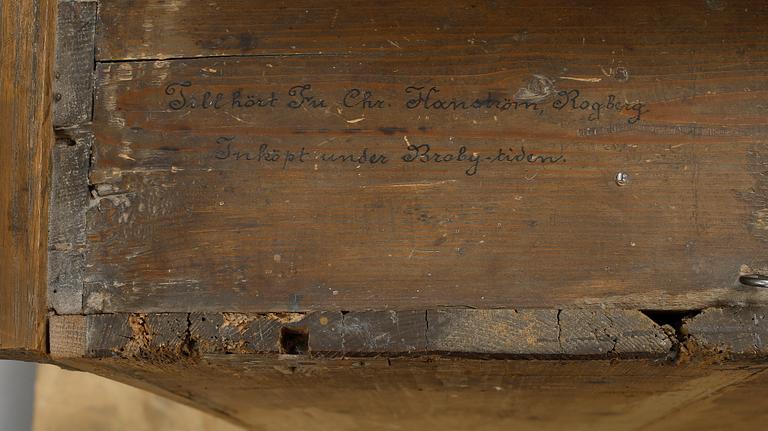 Tillhört Fru Chr. Hanström, Rogberg.
Inköpt under Broby-tiden.